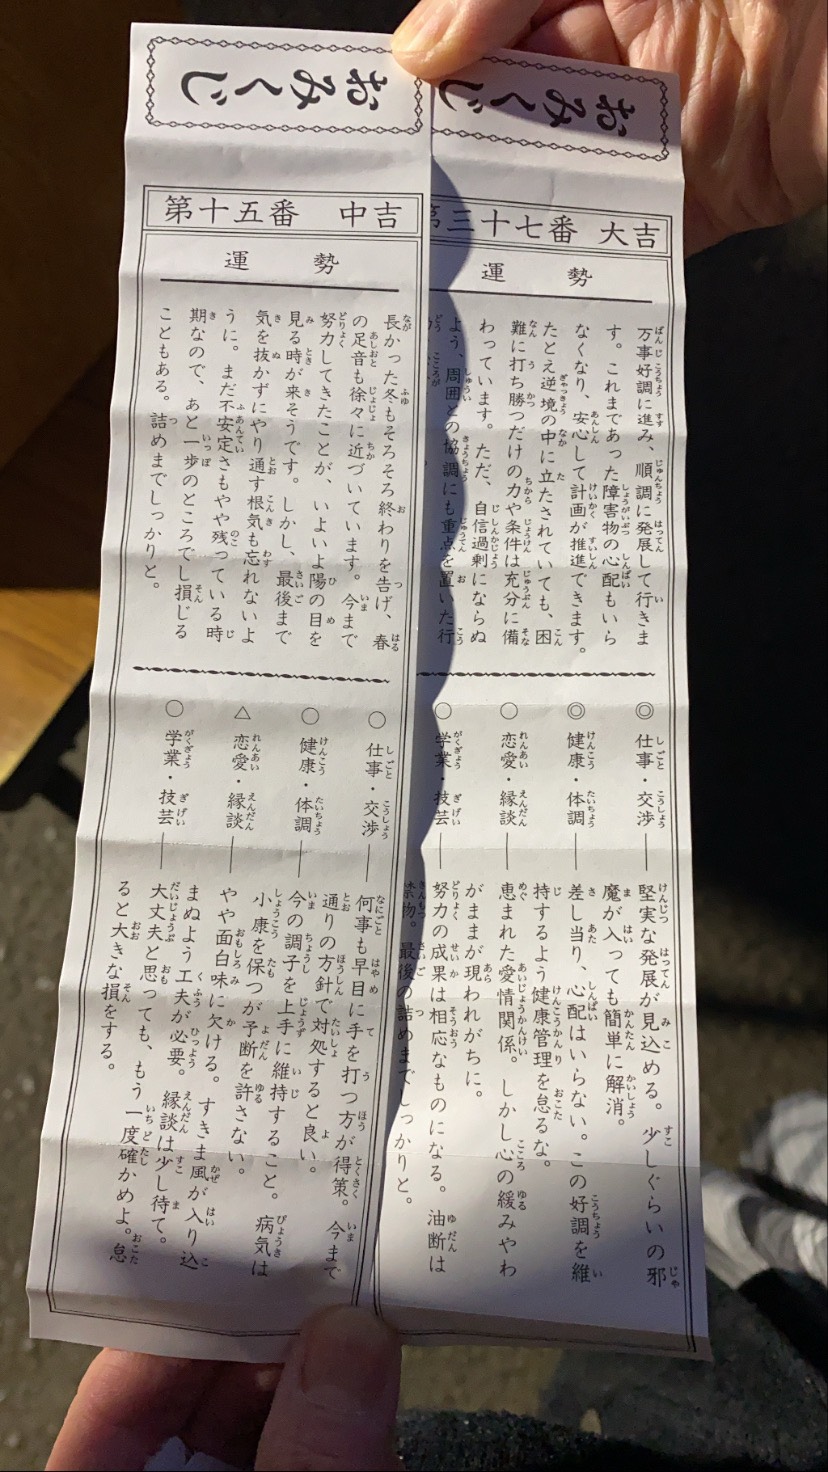 おみくじ
第三十七番 大吉
運勢
万事好調に進み、順調に発展して行きま
す。これまであった障害物の心配もいら
なくなり、安心して計画が推進できます。
たとえ逆境の中に立たされていても、困
難に打ち勝つだけの力や条件は充分に備
わっています。ただ、自信過剰にならぬ
よう、周囲との協調にも重点を置いた行
◎仕事・交渉―堅実な発展が見込める。少しぐらいの邪
魔が入っても簡単に解消。
◎健康・体調―差し当り、心配はいらない。この好調を維
持するよう健康管理を怠るな。
○恋愛・縁談―恵まれた愛情関係。しかし心の緩みやわ
がままが現われがちに。
○学業・技芸―努力の成果は相応なものになる。油断は
禁物。最後の詰めまでしっかりと。
おみくじ
第十五番 中吉
運勢
長かった冬もそろそろ終わりを告げ、春
の足音も徐々に近づいています。今まで
努力してきたことが、いよいよ陽の目を
見る時が来そうです。しかし、最後まで
気を抜かずにやり通す根気も忘れないよ
うに。まだ不安定さもやや残っている時
期なので、あと一歩のところでし損じる
こともある。詰めまでしっかりと。
○仕事・交渉―何事も早目に手を打つ方が得策。今まで
通りの方針で対処すると良い。
○健康・体調―今の調子を上手に維持すること。病気は
小康を保つが予断を許さない。
△恋愛・縁談―やや面白味に欠ける。すきま風が入り込
まぬよう工夫が必要。縁談は少し待て。
○学業・技芸―大丈夫と思っても、もう一度確かめよ。怠
ると大きな損をする。